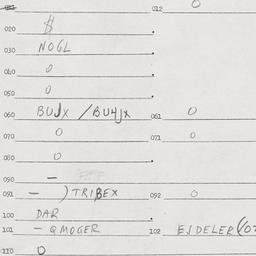 012 0
020 $
030 NOGL
040 0
050 0
060 BUJX / BU4JX 061 0
070 0 071 0
080 0
090 –
091 – ) TRIBEX 092 0
100 DAR
101 – QMOGER 102 EJDELER
110 0